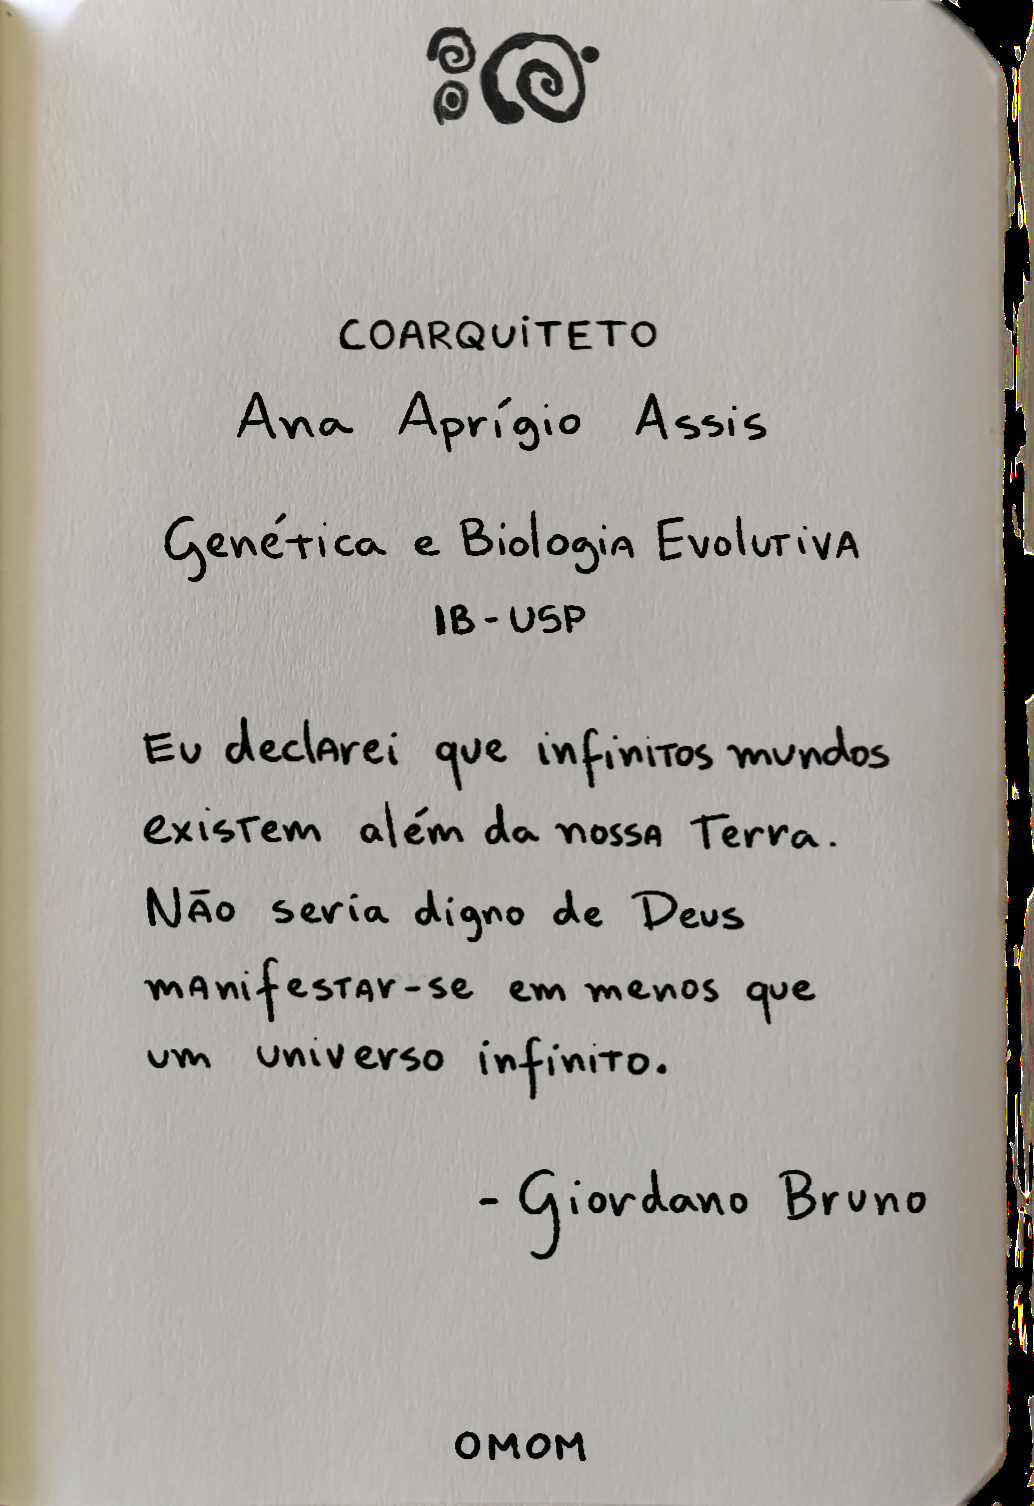 COARQUITETO
Ana Aprígio Assis
Genética e Biologia Evolutiva
IB-USP
Eu declarei que infinitos mundos
existem além da nossa Terra.
Não seria digno de Deus
manifestar-se em menos que
um universo infinito.
- Giordano Bruno
OMOM